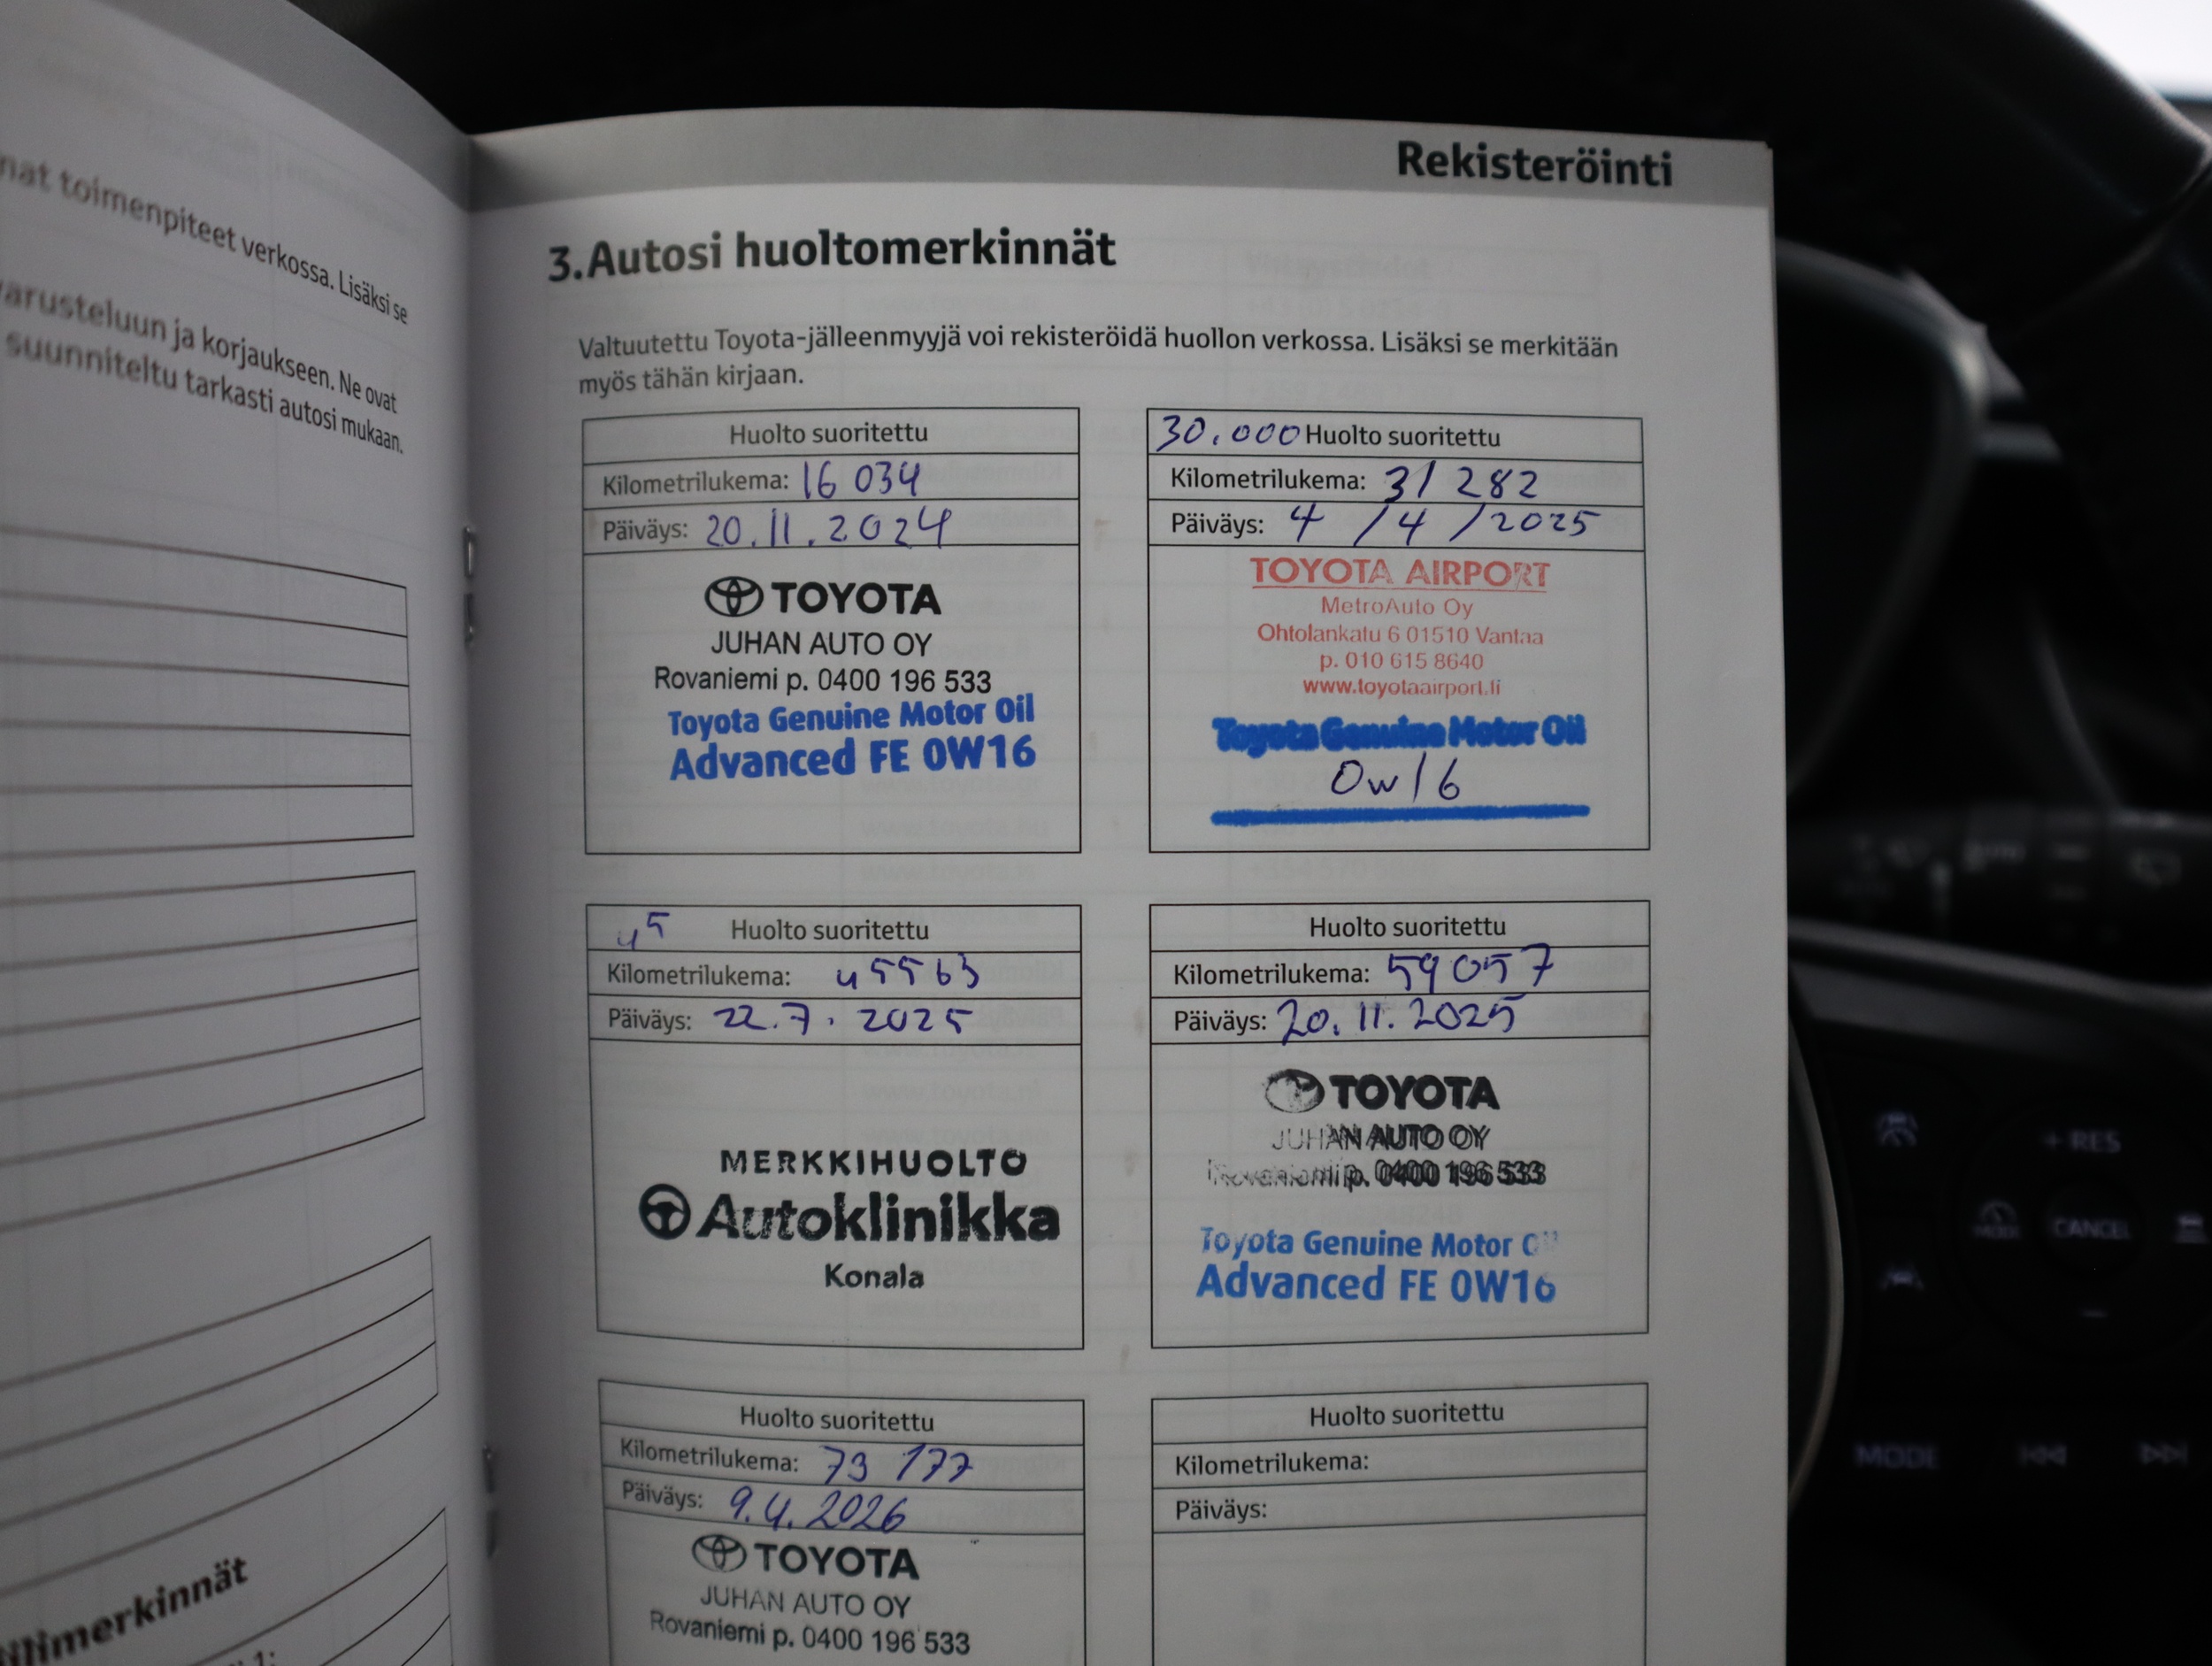 nat toimenpiteet verkossa. Lisäksi se
varusteluun ja korjaukseen. Ne ovat
suunniteltu tarkasti autosi mukaan.
Rekisteröinti
3.Autosi huoltomerkinnät
Valtuutettu Toyota-jälleenmyyjä voi rekisteröidä huollon verkossa. Lisäksi se merkitään
myös tähän kirjaan.
Huolto suoritettu
Kilometrilukema: 16 034
Päiväys: 20.11.2024
TOYOTA
JUHAN AUTO OY
Rovaniemi p. 0400 196 533
Toyota Genuine Motor Oil
Advanced FE 0W16
30.000 Huolto suoritettu
Kilometrilukema: 31 282
Päiväys: 4/4/2025
TOYOTA AIRPORT
MetroAuto Oy
Ohtolankatu 6 01510 Vantaa
p. 010 615 8640
www.toyotaairport.fi
Toyota Genuine Motor Oil
0w16
45 Huolto suoritettu
Kilometrilukema: 45563
Päiväys: 22.7.2025
MERKKIHUOLTO
Autoklinikka
Konala
Huolto suoritettu
Kilometrilukema: 59057
Päiväys: 20.11.2025
TOYOTA
JUHAN AUTO OY
Rovaniemi p. 0400 196 533
Toyota Genuine Motor Oil
Advanced FE 0W16
Huolto suoritettu
Kilometrilukema: 73 177
Päiväys: 9.4.2026
TOYOTA
JUHAN AUTO OY
Rovaniemi p. 0400 196 533
Huolto suoritettu
Kilometrilukema:
Päiväys:
+ RES
CANCEL
MODE